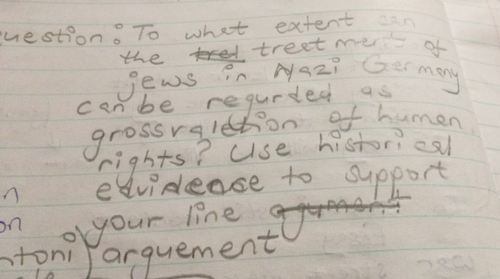 uestion: To what extent can
the tred treetment of
jews in Nazi Germeny
can be regurded as
grossvaletion of humen
rights? Use historicel
edvidence to support
your line agument
n
on
ntoni) arguement